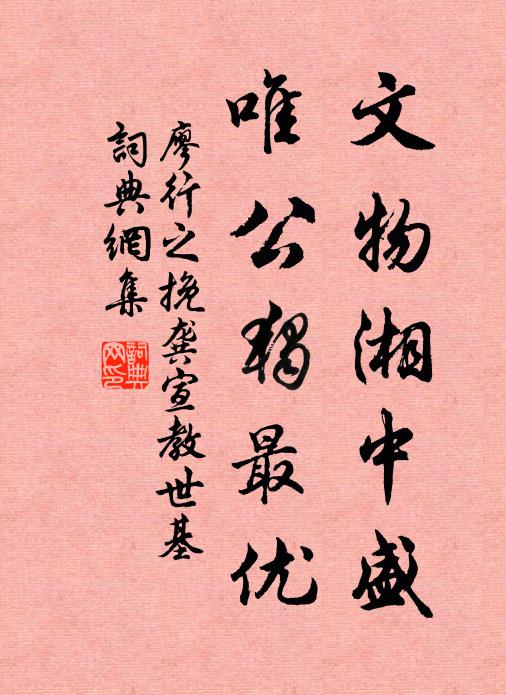 文物湘中盛
唯公独最优
廖行之挽龚宣教世基
詞典網集
詞典網印